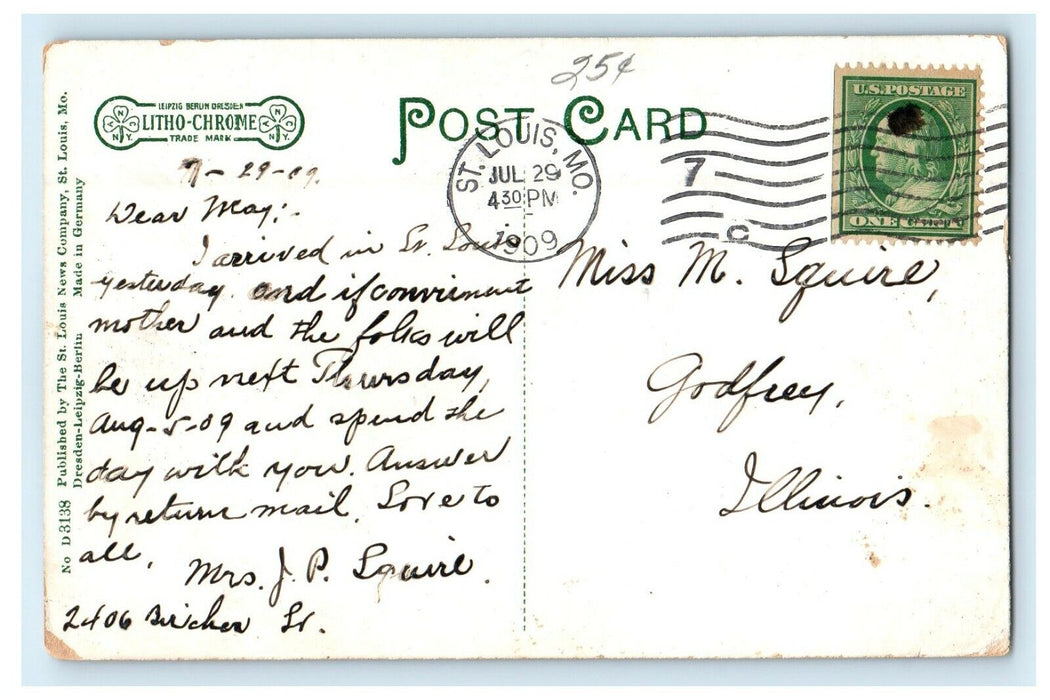 25¢
LEIPZIG BERLIN DRESDEN
LITHO-CHROME
TRADE MARK
N.Y.
N.Y.
POST CARD
ST. LOUIS, MO.
JUL 29
4 30 PM
1909
7
C
U.S. POSTAGE
ONE CENT
7-29-09.
Dear May:-
I arrived in St. Louis
yesterday. and if convenient
mother and the folks will
be up next Thursday,
Aug-5-09 and spend the
day with you. Answer
by return mail. Love to
all,
Mrs. J. P. Squire.
2406 Bircher St.
Miss M. Squire,
Godfrey,
Illinois.
No D3138 Published by The St. Louis News Company, St. Louis, Mo.
Dresden-Leipzig-Berlin Made in Germany